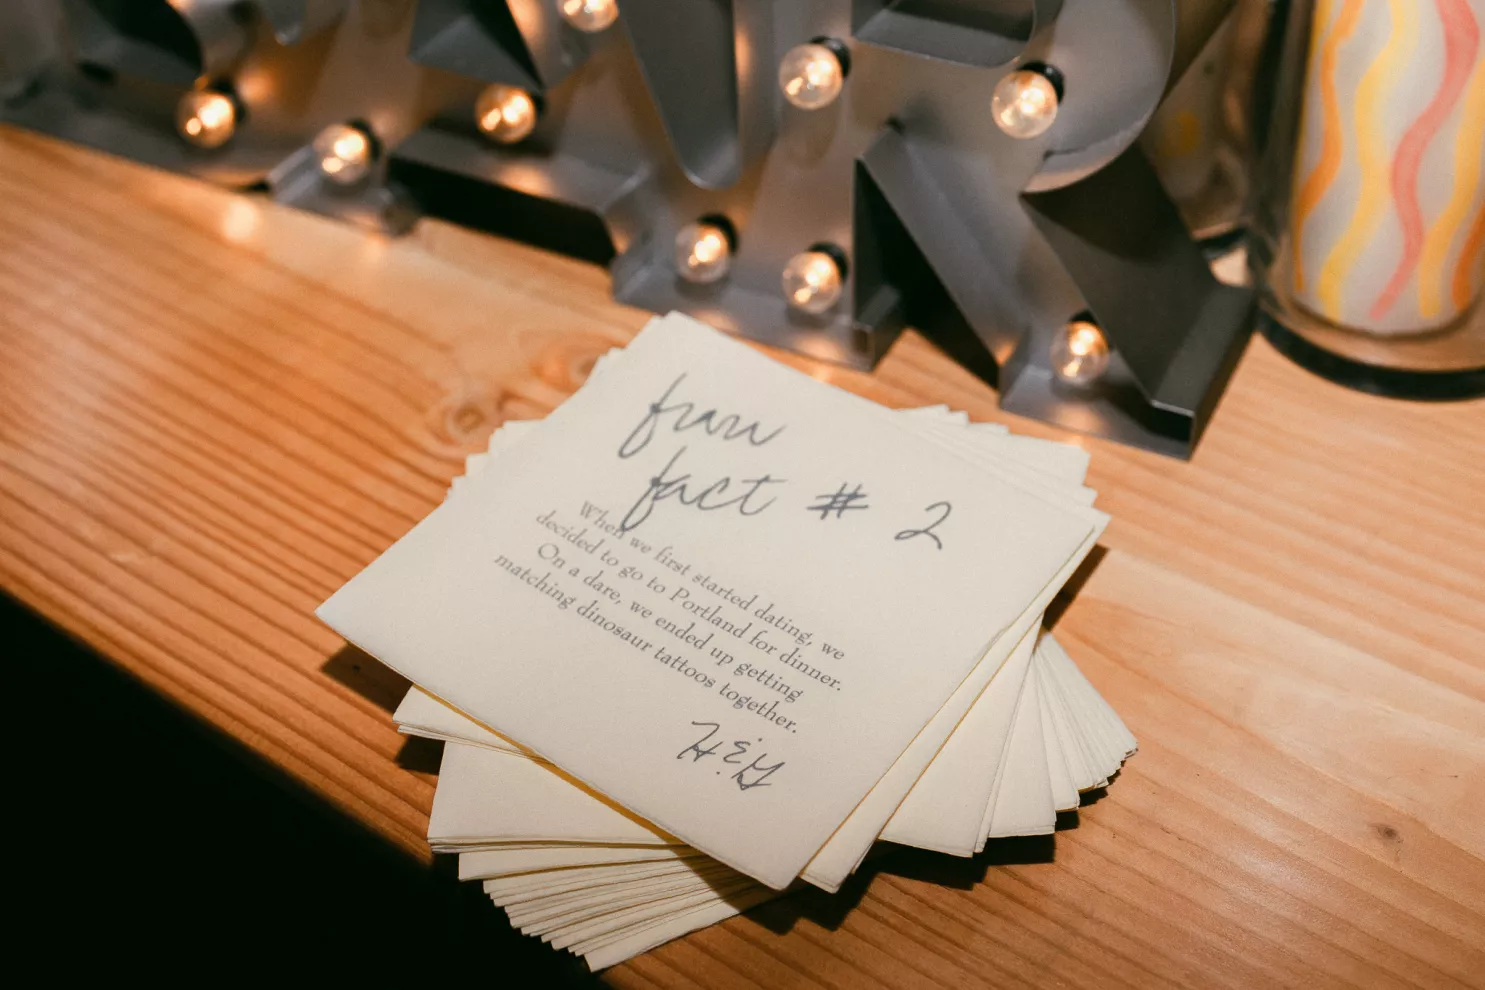 fran
fact # 2
When we first started dating, we
decided to go to Portland for dinner.
On a dare, we ended up getting
matching dinosaur tattoos together.
H & H